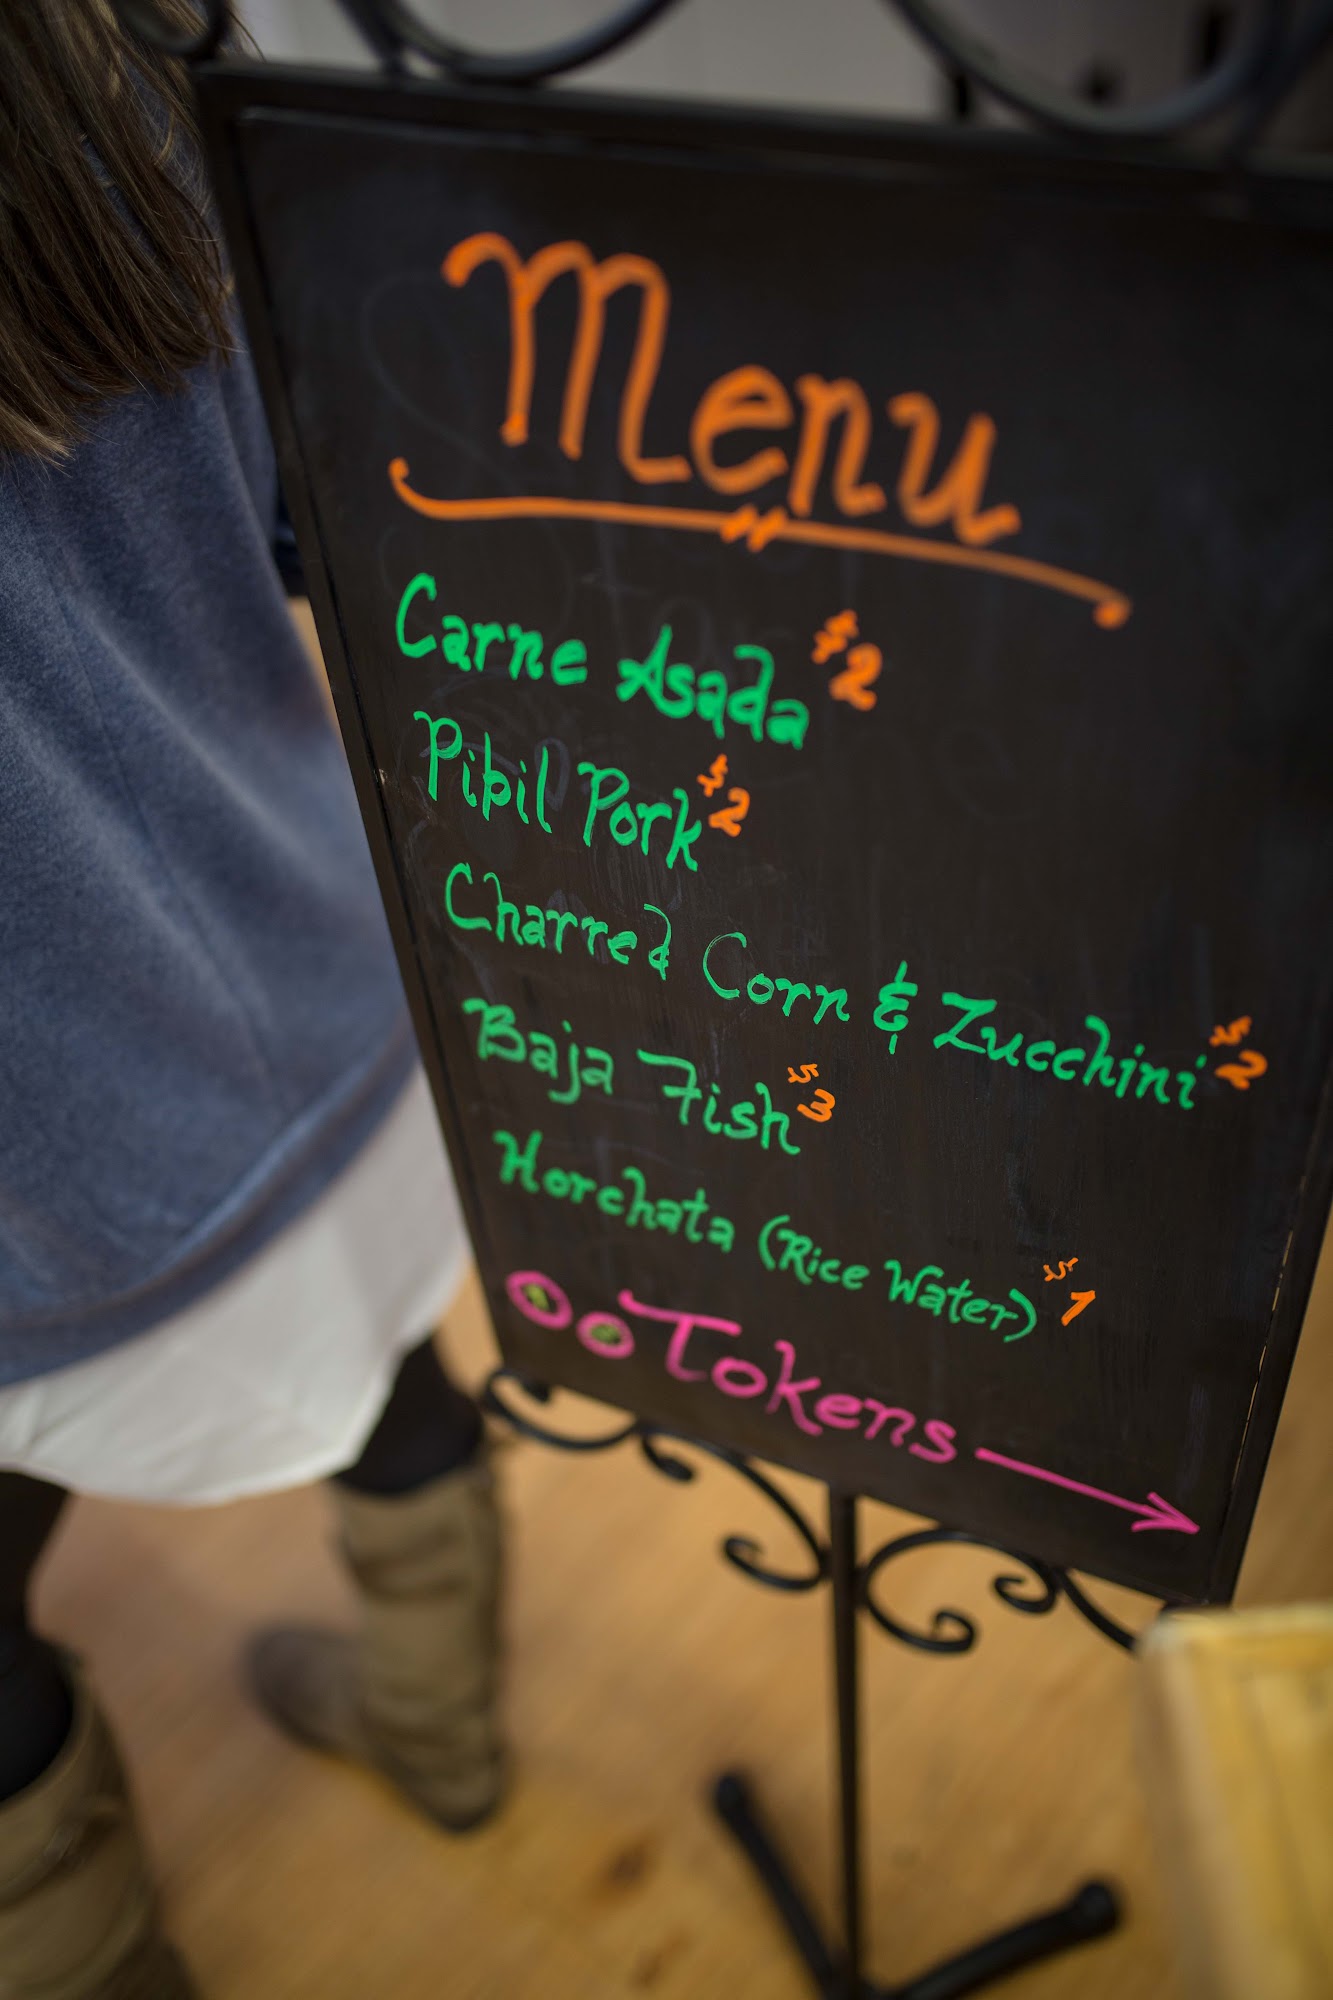 Menu
Carne Asada $2
Pibil Pork $2
Charred Corn & Zucchini $2
Baja Fish $3
Horchata (Rice Water) $1
Tokens